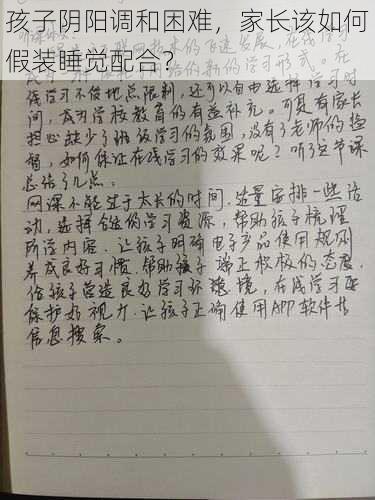 孩子阴阳调和困难，家长该如何
假装睡觉配合？
技术的飞速发展，在线学习
的新的学习形式。在
线学习不仅地点限制，还可以自由选择学习时
间，成为学校教育的有益补充。可是有家长
担心缺少了班级学习的氛围，没有了老师的监
督，如何保证在线学习的效果呢？听了这节课
总结了几点：
网课不能过于太长的时间，尽量安排一些活
动，选择合适的学习资源，帮助孩子梳理
所学内容，让孩子明确电子产品使用规则
养成良好习惯，帮助孩子端正积极的态度，
给孩子营造良好学习环境，在线学习要
保护好视力，让孩子正确使用APP软件找
信息搜索。